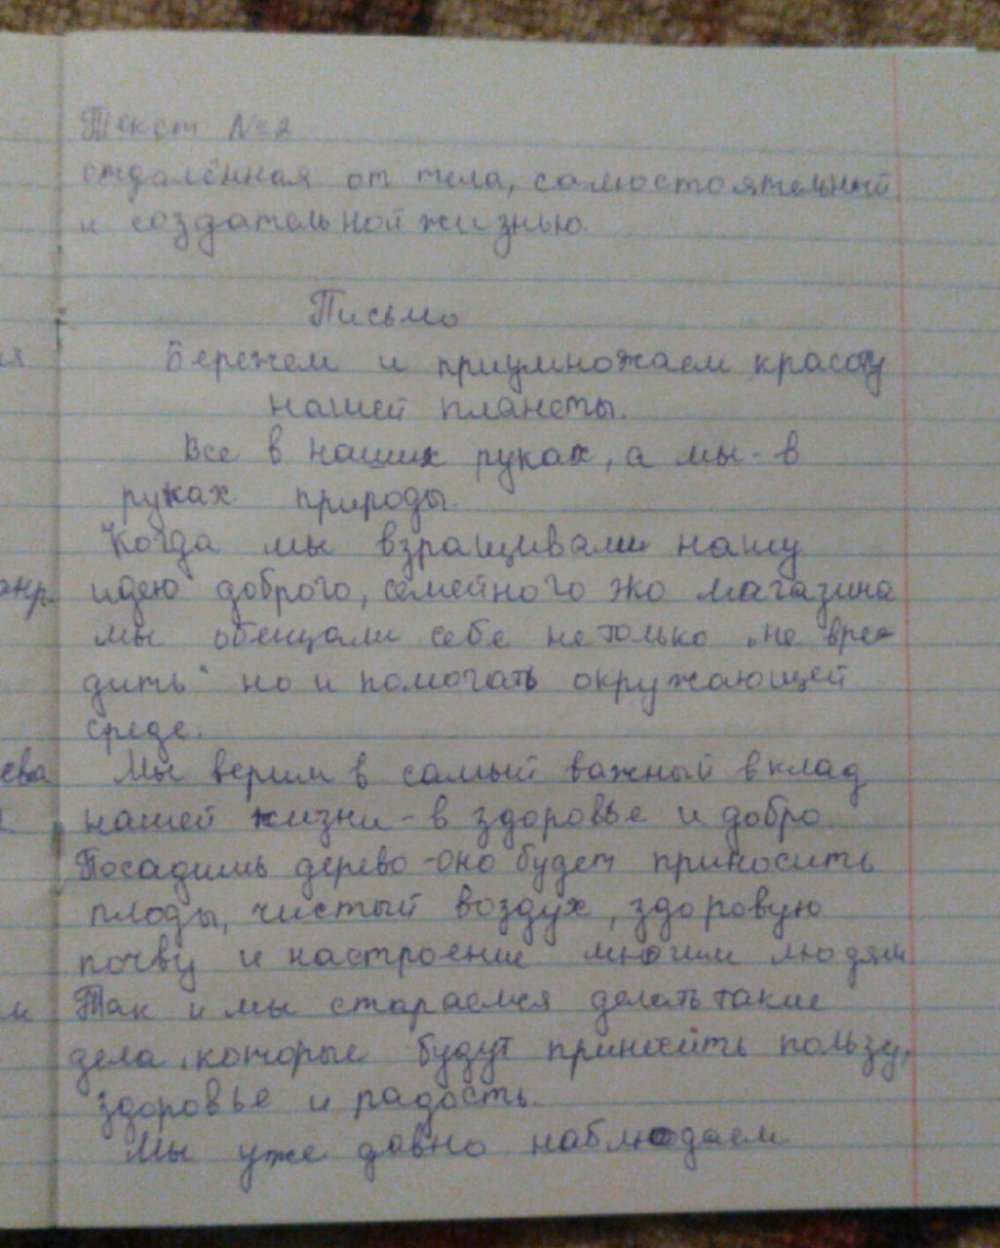 Текст №2
отдалённая от тела, самостоятельной
и создательной жизнью.
Письмо
Бережем и приумножаем красоту
нашей планеты.
Все в наших руках, а мы - в
руках природы.
Когда мы взращивали нашу
идею доброго, семейного эко магазина
мы обещали себе не только „не вре-
дить“ но и помогать окружающей
среде.
Мы верим в самый важный вклад
нашей жизни - в здоровье и добро.
Посадишь дерево - оно будет приносить
плоды, чистый воздух, здоровую
почву и настроение многим людям
Так и мы стараемся делать такие
дела, которые будут приносить пользу,
здоровье и радость.
Мы уже давно наблюдаем